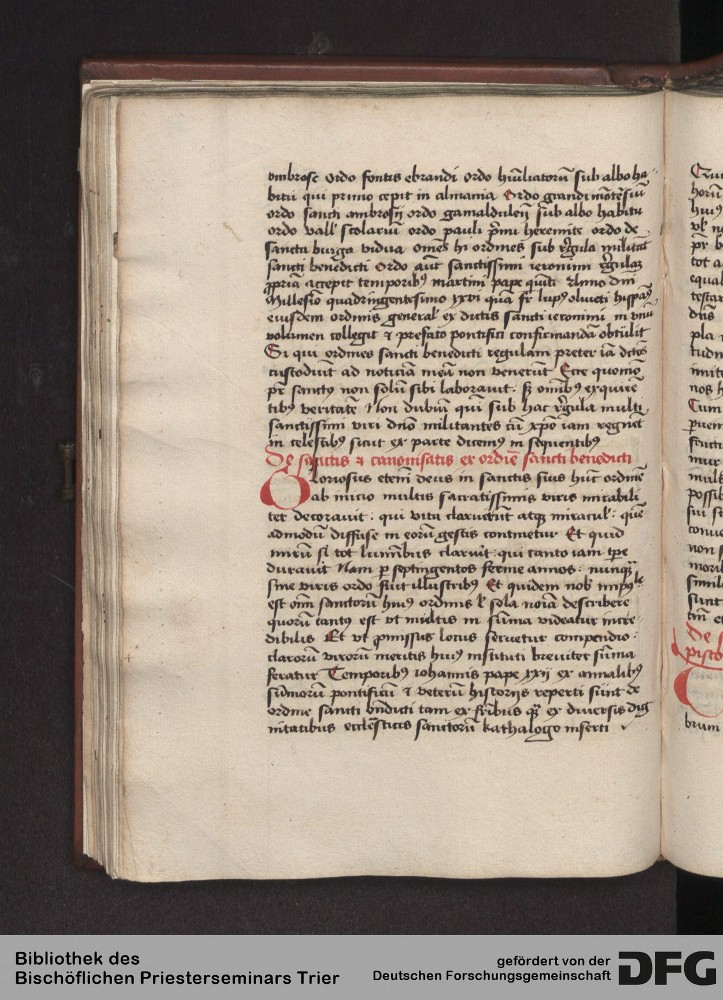 ombrose ordo fontis ebrandi ordo hūiliatorū sub albo ha
bitu qui primo cepit in almania Ordo grandimōtēsiū
ordo sancti ambrosij ordo gamalduleñ sub albo habitu
ordo vall' scolariū ordo pauli pʳmi heremite ordo de
sancta burga vidua om̄es hi ordines sub rr̄gula militāt
sancti benedicti Ordo aūt sanctissimi ieronimi rr̄gulaʒ
ꝓpriā accepit temporibꝰ martini pape quīti Anno dñi
Millesio quadringentesimo xxvi quā fr̄ lupꝰ olueti hispanꝰ
eiusdem ordinis general' ex dictis sancti ieronimi in vnū
volumen collegit ⁊ prefato pontifici confirmandā obtulit
Si qui ordines sancti benedicti regulam preter iā dc̄os
custodiūt ad noticiā meā non venerūt Ecce quomō
pr̄ sanctꝰ non solū sibi laborauit. sꝫ om̄ibꝰ exquirē
tibꝰ veritatē Non dubiū quī sub hac rr̄gula multi
sanctissimi viri dn̄o militantes cū xp̄o iam regnēt
in celestibꝰ sicut ex parte dicemꝰ in sequentibꝰ
De sanctis ⁊ canonisatis ex ordīe sancti benedicti
Gloriosus eteni deus in sanctis suis hūc ordinē
ab inicio multis sacratissimis viris mirabili
ter decorauit. qui vita claruerūt atqꝫ miracul'. quē
admodū diffuse in eorū gestis continetur Et quid
mirū si tot lumībus claruit. qui tanto iam tꝑe
durauit Nam ꝑ septingentos ferme annos. nunqꝫ
sine viris ordo fuit illustribꝰ Et quidem nob̄ inpoˡᵉ
est om̄ sanctorū huiꝰ ordinis l' sola noīa describere
quorū tantꝰ est vt multis in sūma videatur incre
dibilis Et vt ꝓmissus locus seruetur compendio.
clarorū virorū meritis huiꝰ instituti breuiter sūma
feratur Temporibꝰ iohannis pape xxij ex annalibꝰ
sūmorum pontificū ⁊ veterū historijs reperti sunt de
ordine sancti bn̄dicti tam ex fr̄ibus qꝫ ex diuersis dig
nitatibus ecclesticis sanctorū kathalogo inserti
Bibliothek des
Bischöflichen Priesterseminars Trier
gefördert von der
Deutschen Forschungsgemeinschaft
DFG